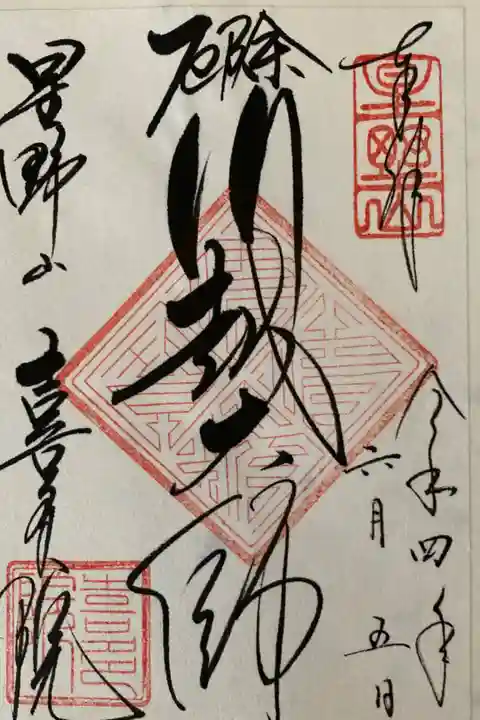 奉拝
令和四年
六月
五日
厄除
川越大師
星野山
喜多院